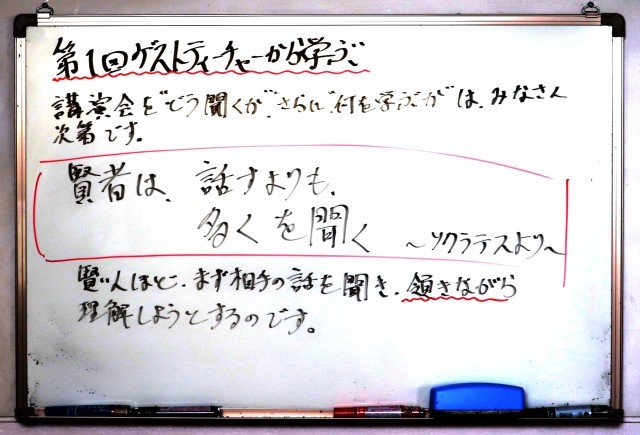 第1回ゲストティーチャーから学ぶ
講演会を"どう聞くか"、さらに"何を学ぶか"は、みなさん
次第です。
賢者は、話すよりも、
多くを聞く
～ソクラテスより～
賢い人ほど、まず相手の話を聞き、頷きながら
理解しようとするのです。